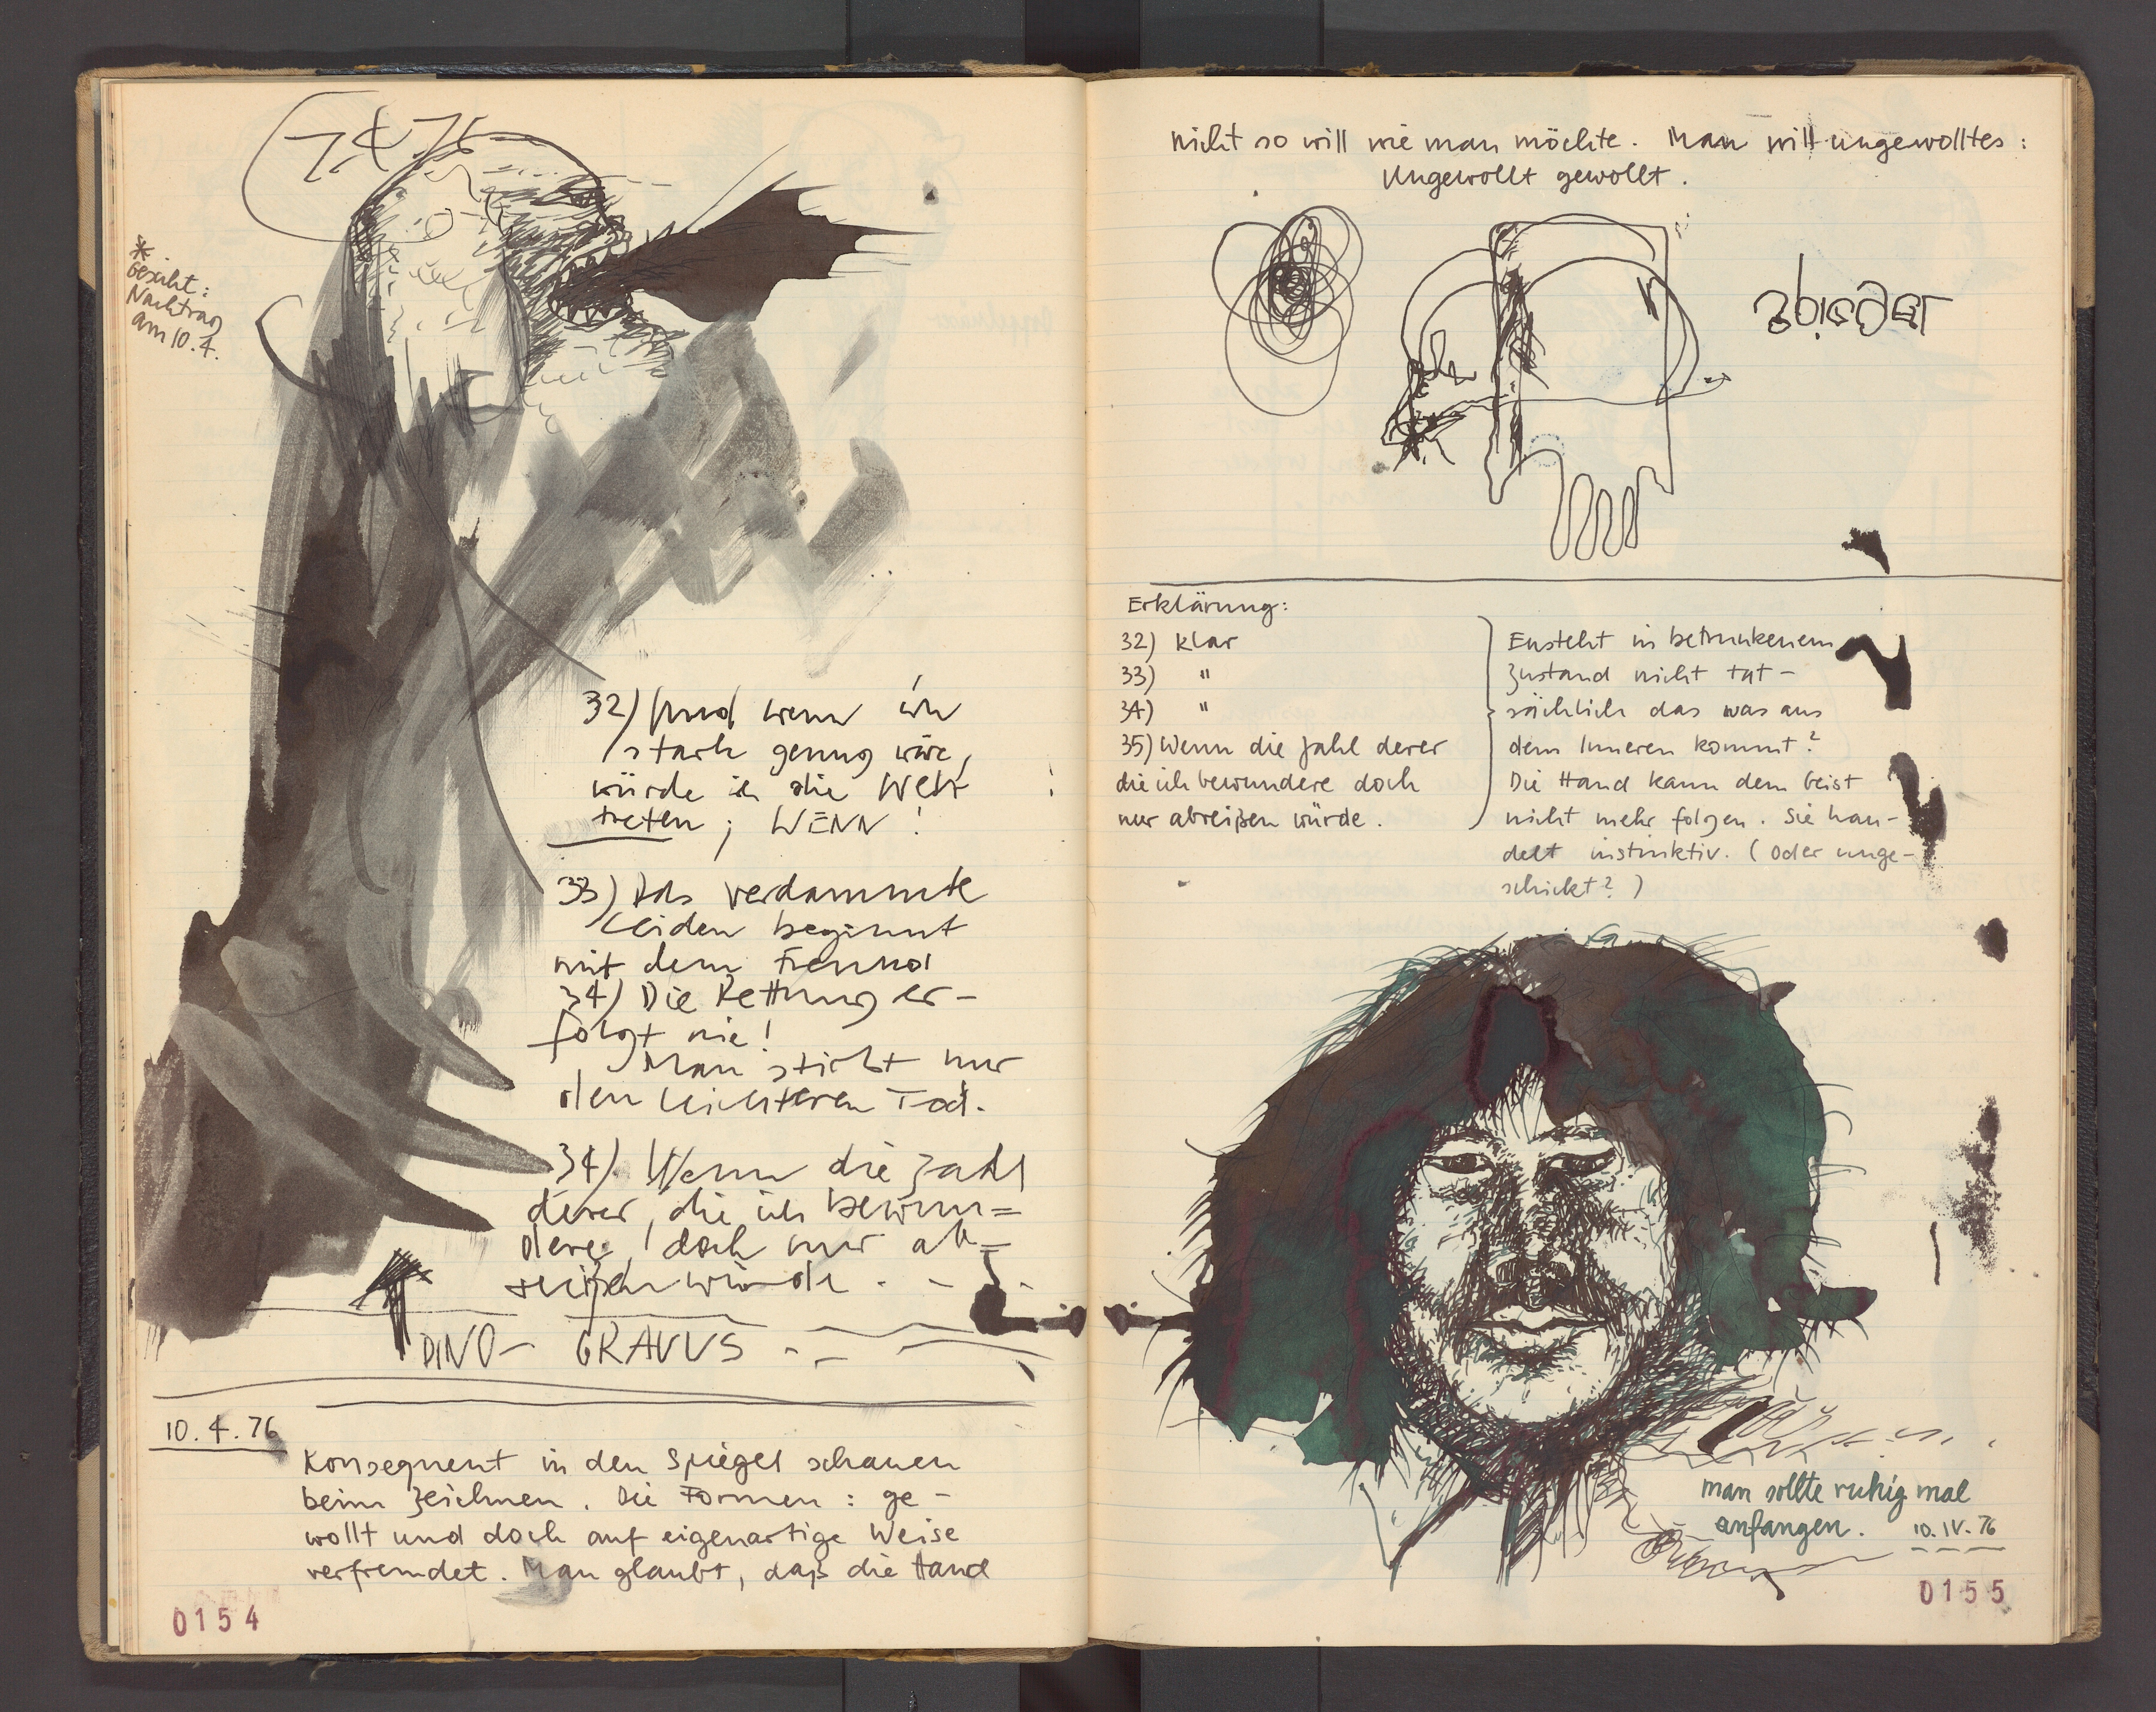 7.4.76
*
Gesicht:
Nachtrag
am 10.4.
32) Und wenn ich
stark genug wäre,
würde ich die Welt
treten; WENN!
33) Das verdammte
Leiden beginnt
mit dem Freund
34) Die Rettung er-
folgt nie!
Man stirbt nur
den leichteren Tod.
34) Wenn die Zahl
derer, die ich bewun=
dere, doch nur ab=
reißen würde . - .
DINO- GRAVVS . -
10.4.76
Konsequent in den Spiegel schauen
beim Zeichnen. Die Formen: ge-
wollt und doch auf eigenartige Weise
verfremdet. Man glaubt, daß die Hand
0154
nicht so will wie man möchte. Man will ungewolltes:
Ungewollt gewollt.
Erklärung:
32) klar
33) "
34) "
35) Wenn die Zahl derer
die ich bewundere doch
nur abreißen würde.
Ensteht in betrunkenem
Zustand nicht tat-
sächlich das was aus
dem Inneren kommt?
Die Hand kann dem Geist
nicht mehr folgen. Sie han-
delt instinktiv. (Oder unge-
schickt?)
man sollte ruhig mal
anfangen. 10.IV.76
0155